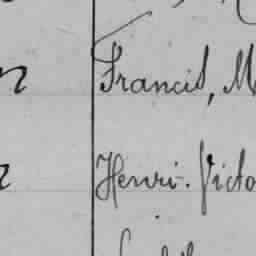 Francis, M
Henri-Victo